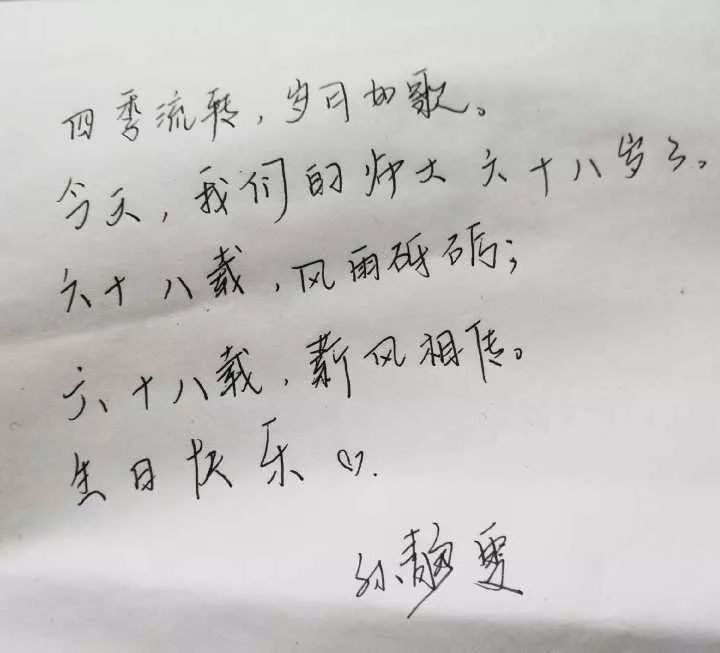 四季流转，岁月如歌。
今天，我们的师大六十八岁了。
六十八载，风雨砥砺；
六十八载，薪风相传。
生日快乐♡.
孙静雯